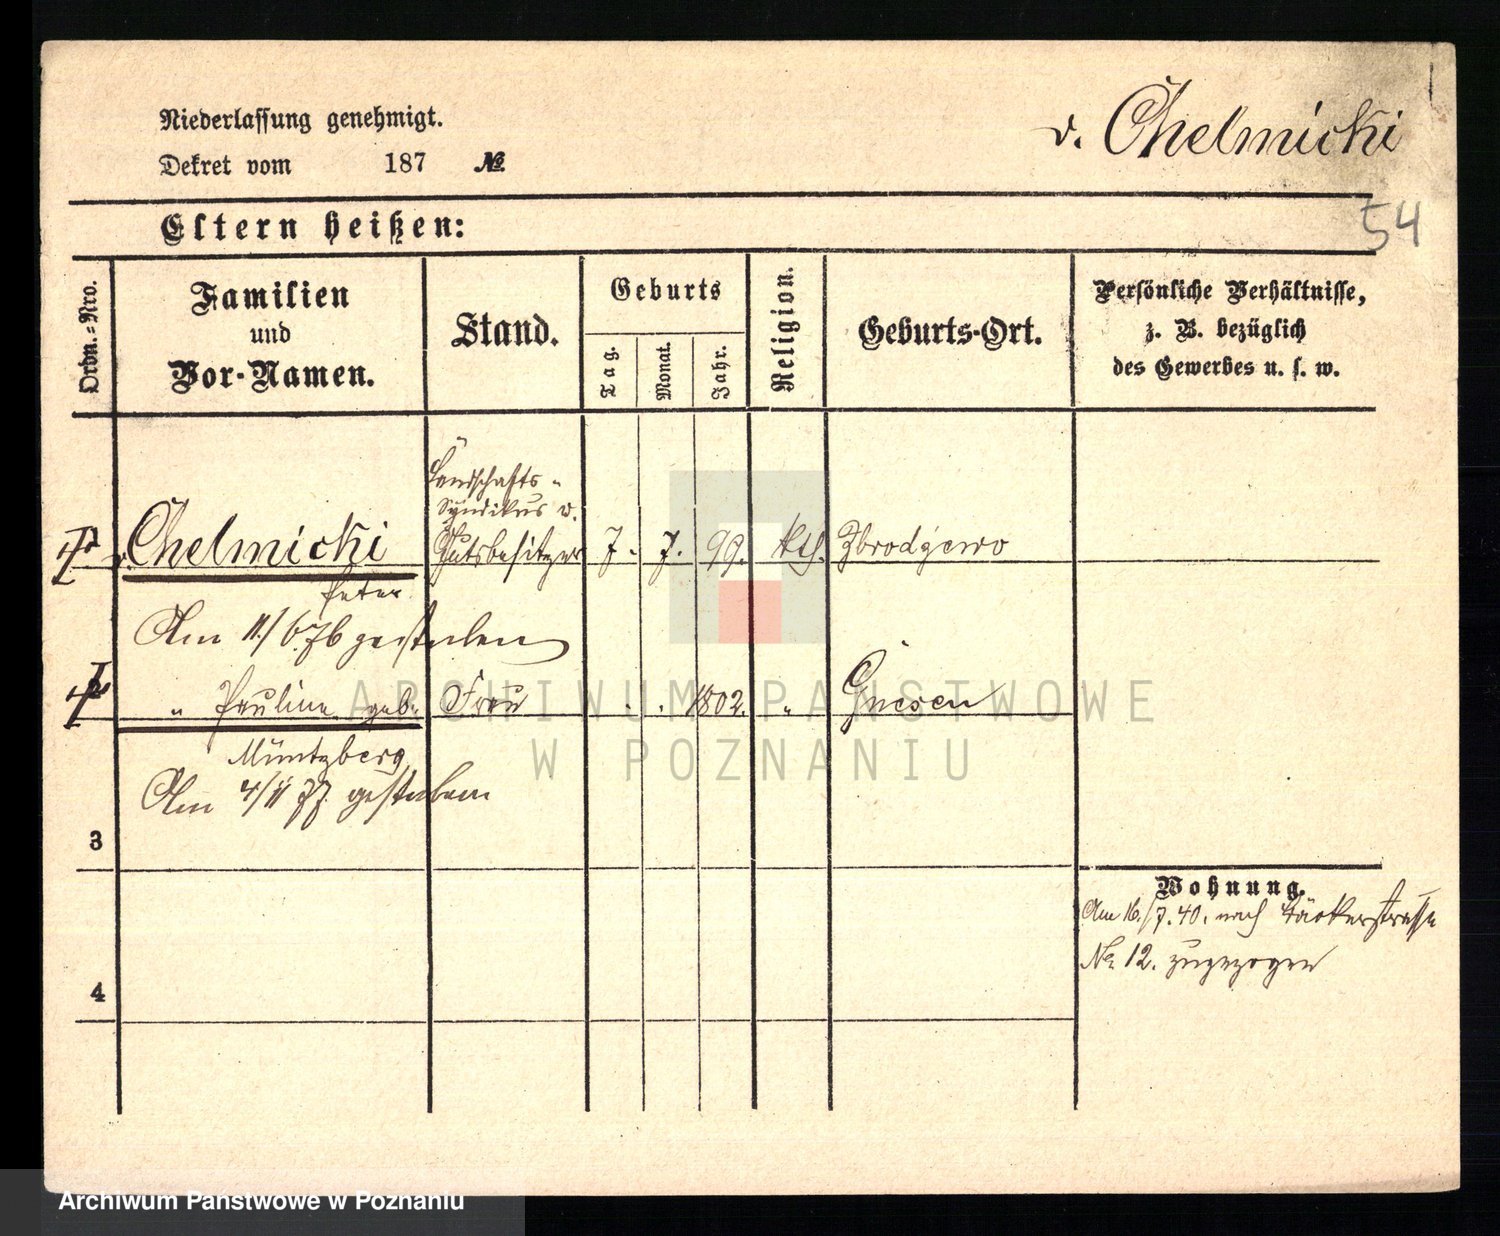 Niederlassung genehmigt.
v. Chelmicki
Dekret vom 187 №
54
Eltern heißen:
Ordn.=Nro.
Familien
und
Vor-Namen.
Stand.
Geburts
Tag.
Monat.
Jahr.
Religion.
Geburts-Ort.
Persönliche Verhältnisse,
z. B. bezüglich
des Gewerbes u. s. w.
Landschafts-
Syndikus u.
v. Chelmicki Gutsbesitzer 7. 7. 99. kth. Zbrodzewo
Peter
Am 11/6.76 gestorben
" Pauline geb. Frau . . 1802. " Gnesen
Müntzberg
Am 4/11 77. gestorben
3
Wohnung.
Am 16./7.40. nach Bäckerstraße
№ 12. zugezogen
4
ARCHIWUM PAŃSTWOWE
W POZNANIU
Archiwum Państwowe w Poznaniu